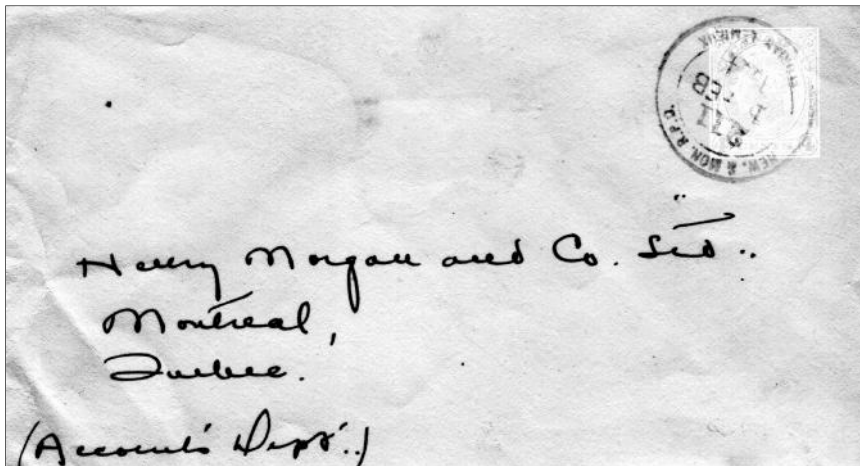 NEW. & MON. R.P.O.
FEB
Henry Morgan and Co. Ltd..
Montreal,
Quebec.
(Accounts Dept..)